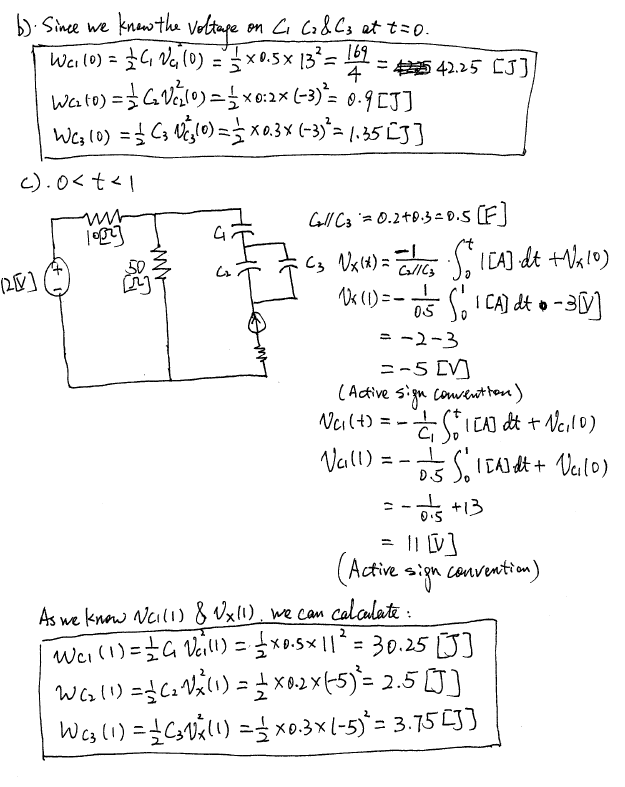 b). Since we know the voltage on C₁ C₂ & C₃ at t=0.
W_{C1}(0) = ½ C₁ V_{C1}²(0) = ½ × 0.5 × 13² = 169/4 = 42.25 [J]
W_{C2}(0) = ½ C₂ V_{C2}²(0) = ½ × 0.2 × (-3)² = 0.9 [J]
W_{C3}(0) = ½ C₃ V_{C3}²(0) = ½ × 0.3 × (-3)² = 1.35 [J]
c). 0 < t < 1
10[Ω]
50 [Ω]
12[V]
+
-
C₁
C₂
C₃
C₂//C₃ = 0.2+0.3 = 0.5 [F]
V_x(t) = -1/(C₂//C₃) · ∫₀ᵗ 1[A] dt + V_x(0)
V_x(1) = - 1/0.5 ∫₀¹ 1[A] dt - 3[V]
= -2-3
= -5 [V]
(Active sign convention)
V_{C1}(t) = - 1/C₁ ∫₀ᵗ 1[A] dt + V_{C1}(0)
V_{C1}(1) = - 1/0.5 ∫₀¹ 1[A] dt + V_{C1}(0)
= - 1/0.5 + 13
= 11 [V]
(Active sign convention)
As we know V_{C1}(1) & V_x(1), we can calculate :
W_{C1}(1) = ½ C₁ V_{C1}²(1) = ½ × 0.5 × 11² = 30.25 [J]
W_{C2}(1) = ½ C₂ V_x²(1) = ½ × 0.2 × (-5)² = 2.5 [J]
W_{C3}(1) = ½ C₃ V_x²(1) = ½ × 0.3 × (-5)² = 3.75 [J]